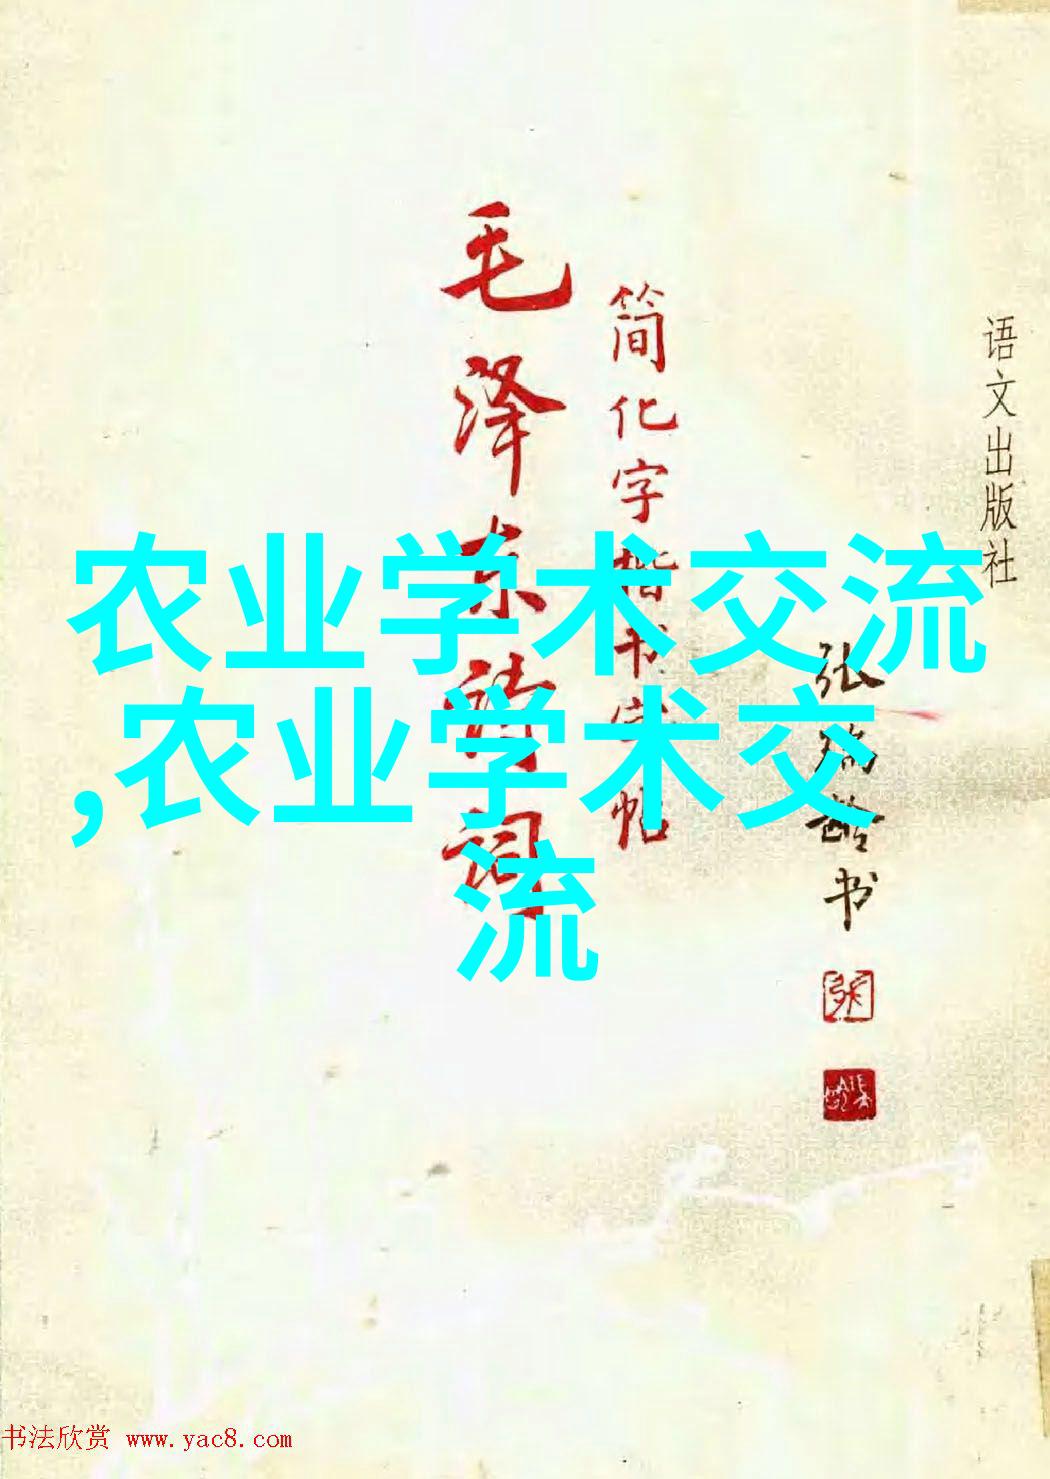 语文出版社
张瑞龄书
简化字楷书字帖
毛泽东诗词
农业学术交流
,农业学术交
流
书法欣赏 www.yac8.com